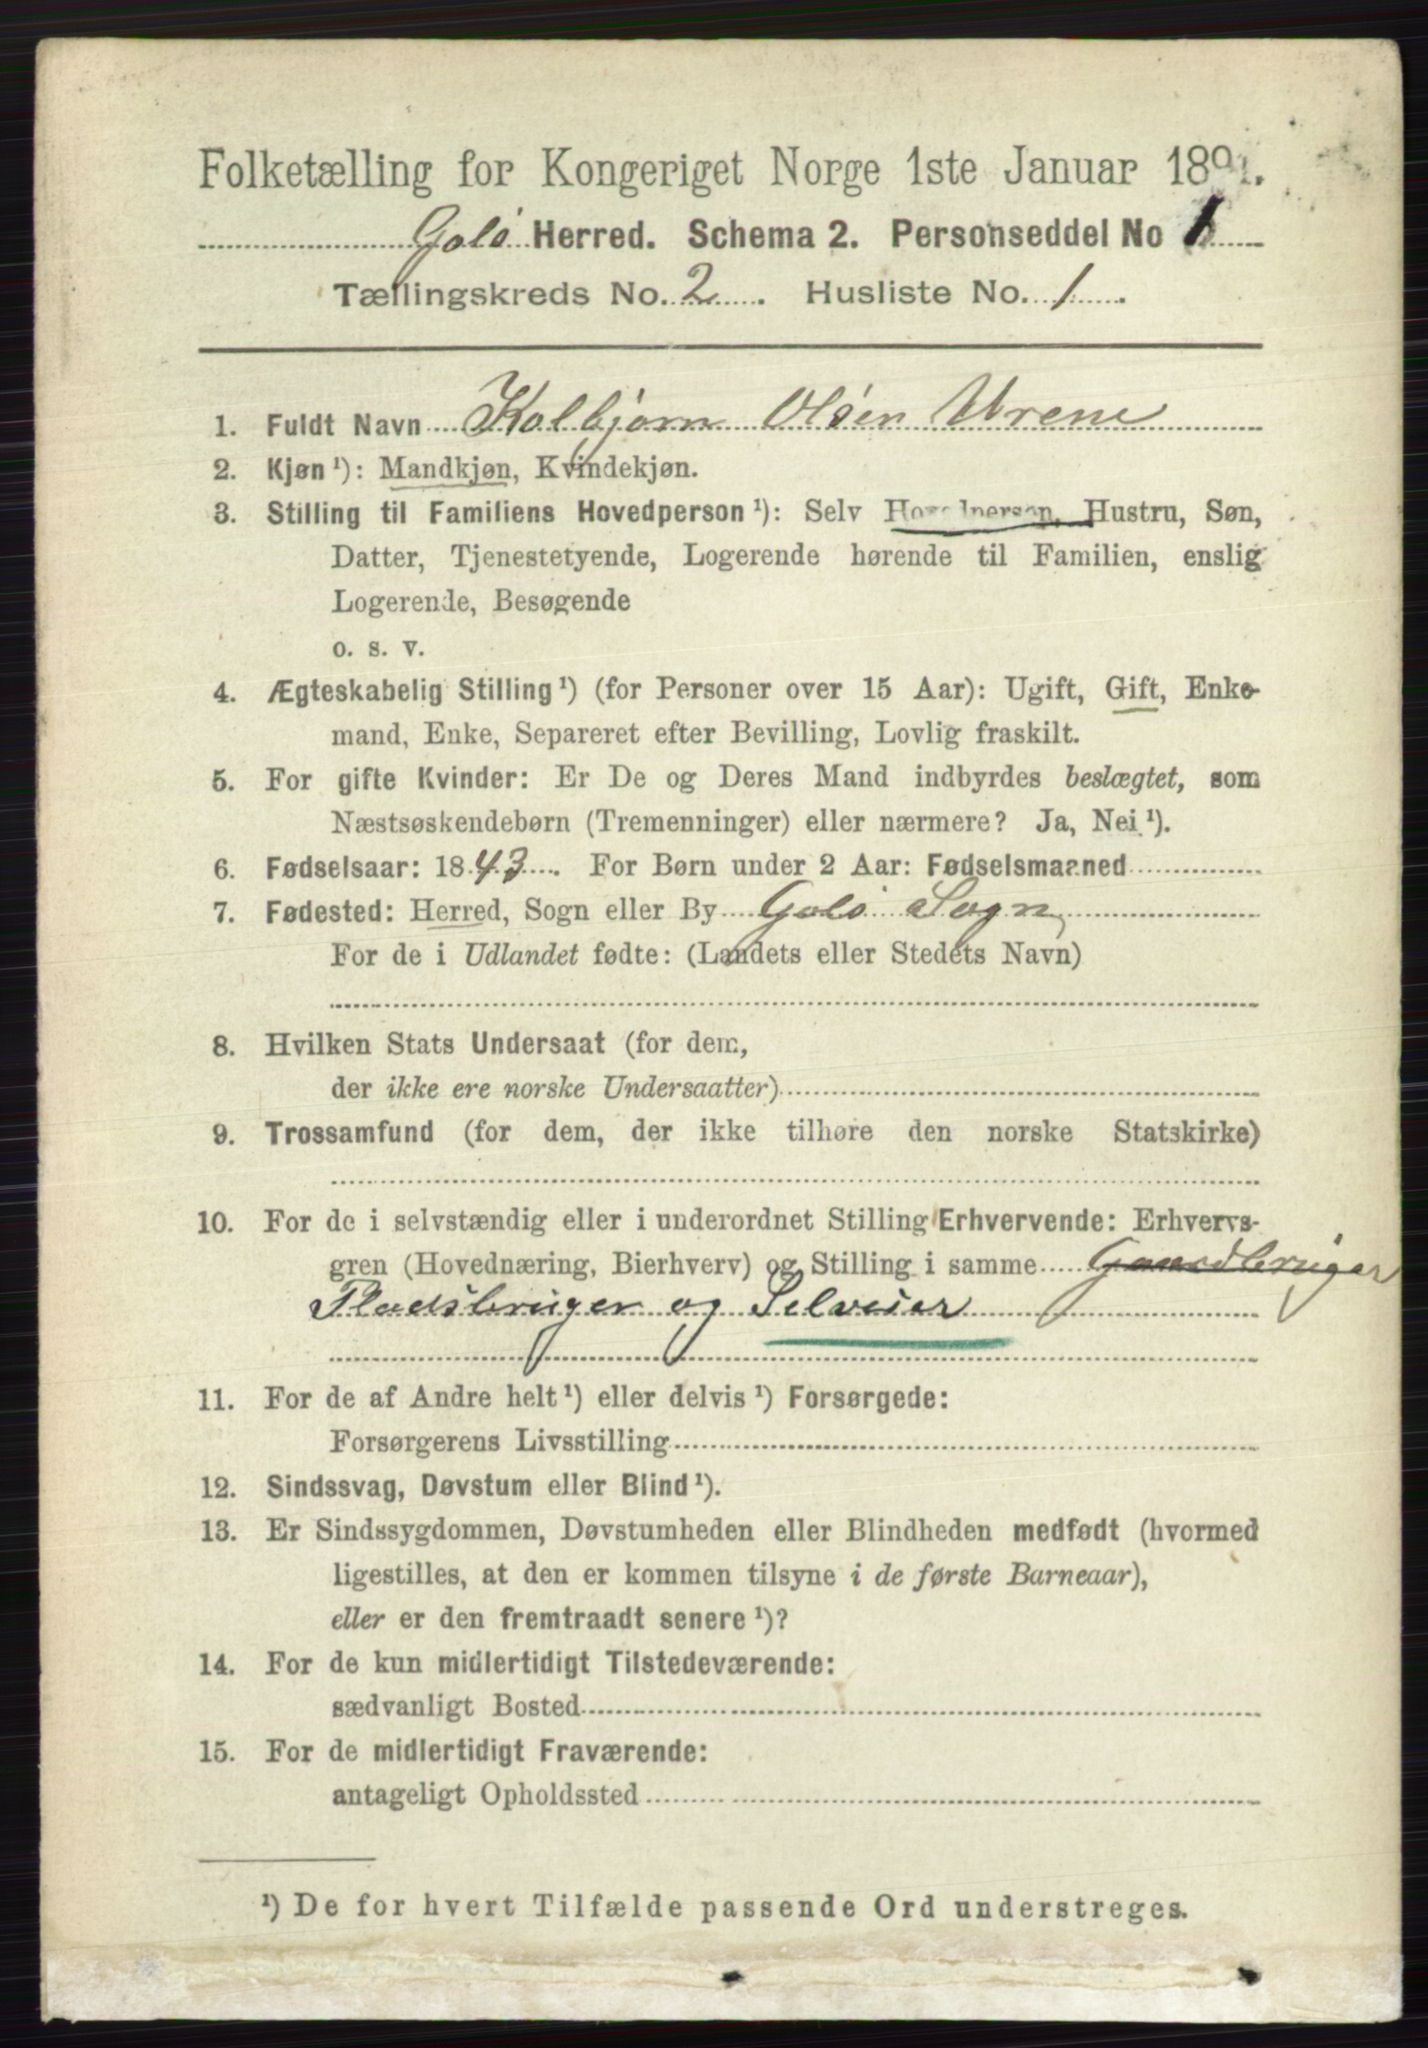 Folketælling for Kongeriget Norge 1ste Januar 1891.
Gols Herred. Schema 2. Personseddel No 1
Tællingskreds No. 2. Husliste No. 1.
1. Fuldt Navn Kolbjørn Olsen Vrene
2. Kjøn ¹): Mandkjøn, Kvindekjøn.
3. Stilling til Familiens Hovedperson ¹): Selv Hovedperson, Hustru, Søn,
Datter, Tjenestetyende, Logerende hørende til Familien, enslig
Logerende, Besøgende
o. s. v.
4. Ægteskabelig Stilling ¹) (for Personer over 15 Aar): Ugift, Gift, Enke-
mand, Enke, Separeret efter Bevilling, Lovlig fraskilt.
5. For gifte Kvinder: Er De og Deres Mand indbyrdes beslægtet, som
Næstsøskendebørn (Tremenninger) eller nærmere? Ja, Nei ¹).
6. Fødselsaar: 1843. For Børn under 2 Aar: Fødselsmaaned
7. Fødested: Herred, Sogn eller By Gols Sogn,
For de i Udlandet fødte: (Landets eller Stedets Navn)
8. Hvilken Stats Undersaat (for dem,
der ikke ere norske Undersaatter)
9. Trossamfund (for dem, der ikke tilhøre den norske Statskirke)
10. For de i selvstændig eller i underordnet Stilling Erhvervende: Erhvervs-
gren (Hovednæring, Bierhverv) og Stilling i samme Gaardbruger
Pladsbruger og Selveier
11. For de af Andre helt ¹) eller delvis ¹) Forsørgede:
Forsørgerens Livsstilling
12. Sindssvag, Døvstum eller Blind ¹).
13. Er Sindssygdommen, Døvstumheden eller Blindheden medfødt (hvormed
ligestilles, at den er kommen tilsyne i de første Barneaar),
eller er den fremtraadt senere ¹)?
14. For de kun midlertidigt Tilstedeværende:
sædvanligt Bosted
15. For de midlertidigt Fraværende:
antageligt Opholdssted
¹) De for hvert Tilfælde passende Ord understreges.